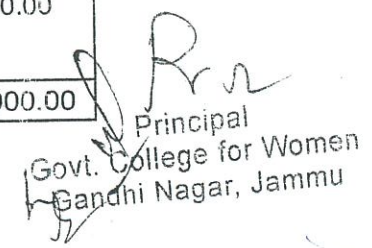 0.00
000.00
Principal
Govt. College for Women
Gandhi Nagar, Jammu